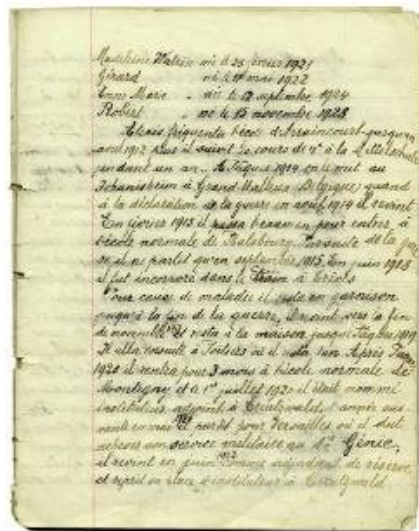 Madeleine Watrin née le 25 février 1921
Gérard né le 4 mai 1922
Anne Marie " née le 12 septembre 1924
Robert " né le 13 novembre 1928
Alexis fréquenta l'école d'Arraincourt jusqu'en
août 1912 puis il suivit le cours de à la Mittelschule
pendant un an. A Pâques 1914 on le mit au
Johannisheim à Grand-Halleux (Belgique) quand
à la déclaration de la guerre en août 1914 il revint
En février 1915 il passa l'examen pour entrer à
l'école normale de Phalsbourg. Par suite de la
il ne partit qu'en septembre 1915. En juin 1918
il fut incorporé dans le train à
Pour cause de maladie il resta en garnison
jusqu'à la fin de la guerre, il revint vers la fin
de novembre et resta à la maison jusqu'à Pâques 1919
Il alla ensuite à Poitiers où il resta 1 an. Après Pâques
1920 il rentra pour 3 mois à l'école normale de
Montigny et le 1er juillet 1920 il était nommé
instituteur adjoint à Creutzwald, l'année sui-
vante en mai 1921 partit pour Versailles où il dut
achever son service militaire au Génie,
il revint en juin 1922 comme adjudant de réserve
et reprit sa place d'instituteur à Creutzwald